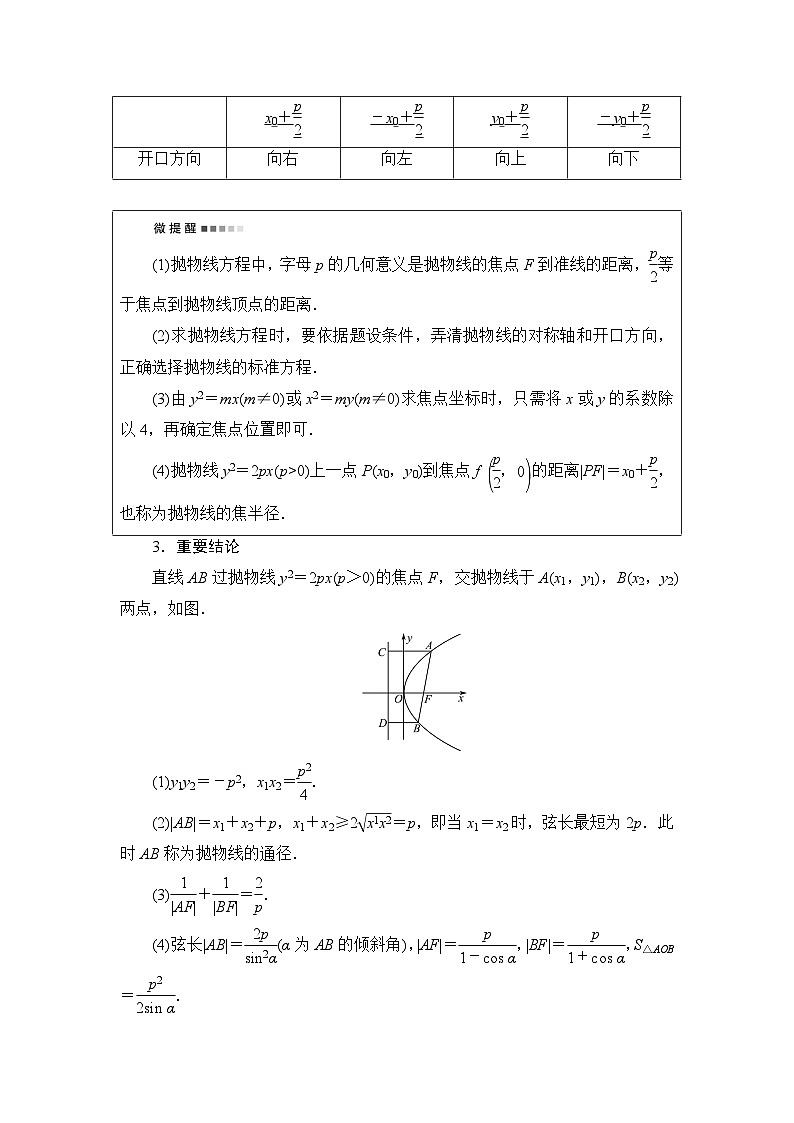 x₀＋p/2 －x₀＋p/2 y₀＋p/2 －y₀＋p/2
开口方向 向右 向左 向上 向下
微提醒
(1)抛物线方程中，字母 p 的几何意义是抛物线的焦点 F 到准线的距离，p/2等
于焦点到抛物线顶点的距离．
(2)求抛物线方程时，要依据题设条件，弄清抛物线的对称轴和开口方向，
正确选择抛物线的标准方程．
(3)由 y²＝mx(m≠0)或 x²＝my(m≠0)求焦点坐标时，只需将 x 或 y 的系数除
以 4，再确定焦点位置即可．
(4)抛物线 y²＝2px(p>0)上一点 P(x₀，y₀)到焦点 f (p/2，0)的距离|PF|＝x₀＋p/2，
也称为抛物线的焦半径．
3．重要结论
直线 AB 过抛物线 y²＝2px(p＞0)的焦点 F，交抛物线于 A(x₁，y₁)，B(x₂，y₂)
两点，如图．
y
C A
O F x
D B
(1)y₁y₂＝－p²，x₁x₂＝p²/4．
(2)|AB|＝x₁＋x₂＋p，x₁＋x₂≥2√(x¹x²)＝p，即当 x₁＝x₂ 时，弦长最短为 2p．此
时 AB 称为抛物线的通径．
(3)1/|AF|＋1/|BF|＝2/p．
(4)弦长|AB|＝2p/sin²α(α 为 AB 的倾斜角)，|AF|＝p/(1－cos α)，|BF|＝p/(1＋cos α)，S△AOB
＝p²/(2sin α)．